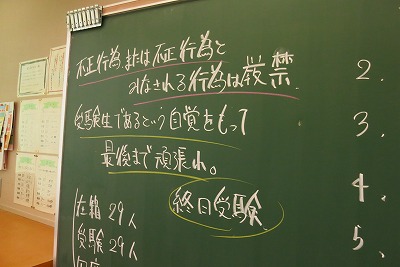 不正行為、または不正行為と
みなされる行為は厳禁.
受験生であるという自覚をもって
最後まで頑張れ。
終日受験
在籍 29人
受験 29人
2.
3.
4.
5.